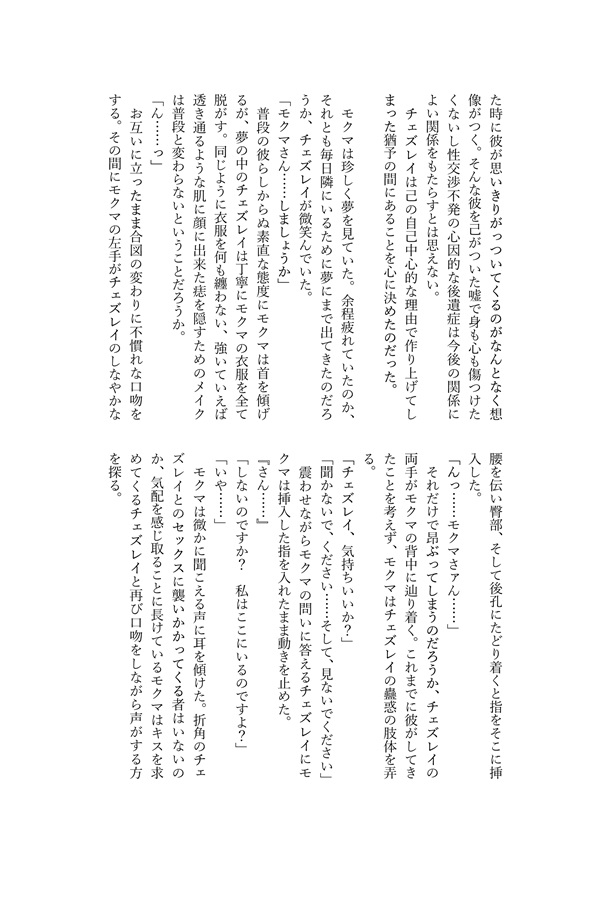 た時に彼が思いきりがっついてくるのがなんとなく想
像がつく。そんな彼を己がついた嘘で身も心も傷つけた
くないし性交渉不発の心因的な後遺症は今後の関係に
よい関係をもたらすとは思えない。
チェズレイは己の自己中心的な理由で作り上げてし
まった猶予の間にあることを心に決めたのだった。
モクマは珍しく夢を見ていた。余程疲れていたのか、
それとも毎日隣にいるために夢にまで出てきたのだろ
うか、チェズレイが微笑んでいた。
「モクマさん……しましょうか」
普段の彼らしからぬ素直な態度にモクマは首を傾げ
るが、夢の中のチェズレイは丁寧にモクマの衣服を全て
脱がす。同じように衣服を何も纏わない、強いていえば
透き通るような肌に顔に出来た痣を隠すためのメイク
は普段と変わらないということだろうか。
「ん……っ」
お互いに立ったまま合図の変わりに不慣れな口吻を
する。その間にモクマの左手がチェズレイのしなやかな
腰を伝い臀部、そして後孔にたどり着くと指をそこに挿
入した。
「んっ……モクマさァん……」
それだけで昂ぶってしまうのだろうか、チェズレイの
両手がモクマの背中に辿り着く。これまでに彼がしてき
たことを考えず、モクマはチェズレイの蠱惑の肢体を弄
る。
「チェズレイ、気持ちいいか?」
「聞かないで、ください……そして、見ないでください」
震わせながらモクマの問いに答えるチェズレイにモ
クマは挿入した指を入れたまま動きを止めた。
『さん……』
「しないのですか? 私はここにいるのですよ?」
「いや……」
モクマは微かに聞こえる声に耳を傾けた。折角のチェ
ズレイとのセックスに襲いかかってくる者はいないの
か、気配を感じ取ることに長けているモクマはキスを求
めてくるチェズレイと再び口吻をしながら声がする方
を探る。